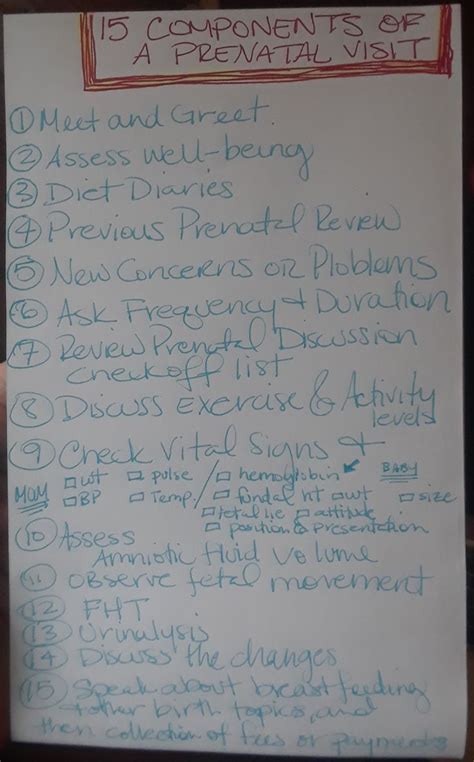 15 COMPONENTS OF
A PRENATAL VISIT
① Meet and Greet.
② Assess well-being
③ Diet Diaries
④ Previous Prenatal Review
⑤ New Concerns OR Ploblems
⑥ Ask Frequency & Duration
⑦ Review Prenatal Discussion
checkoff list
⑧ Discuss exercise & Activity
levels
⑨ Check Vital Signs +
MOM □ wt □ pulse / □ hemoglobin BABY
□ BP □ Temp. / □ fundal ht □ wt □ size
□ fetal lie □ attitude
□ position & presentation
⑩ Assess
Amniotic fluid volume
⑪ observe fetal movement
⑫ FHT
⑬ Urinalysis
⑭ Discuss the changes
⑮ Speak about breastfeeding
+ other birth topics, and
then collection of fees or payments